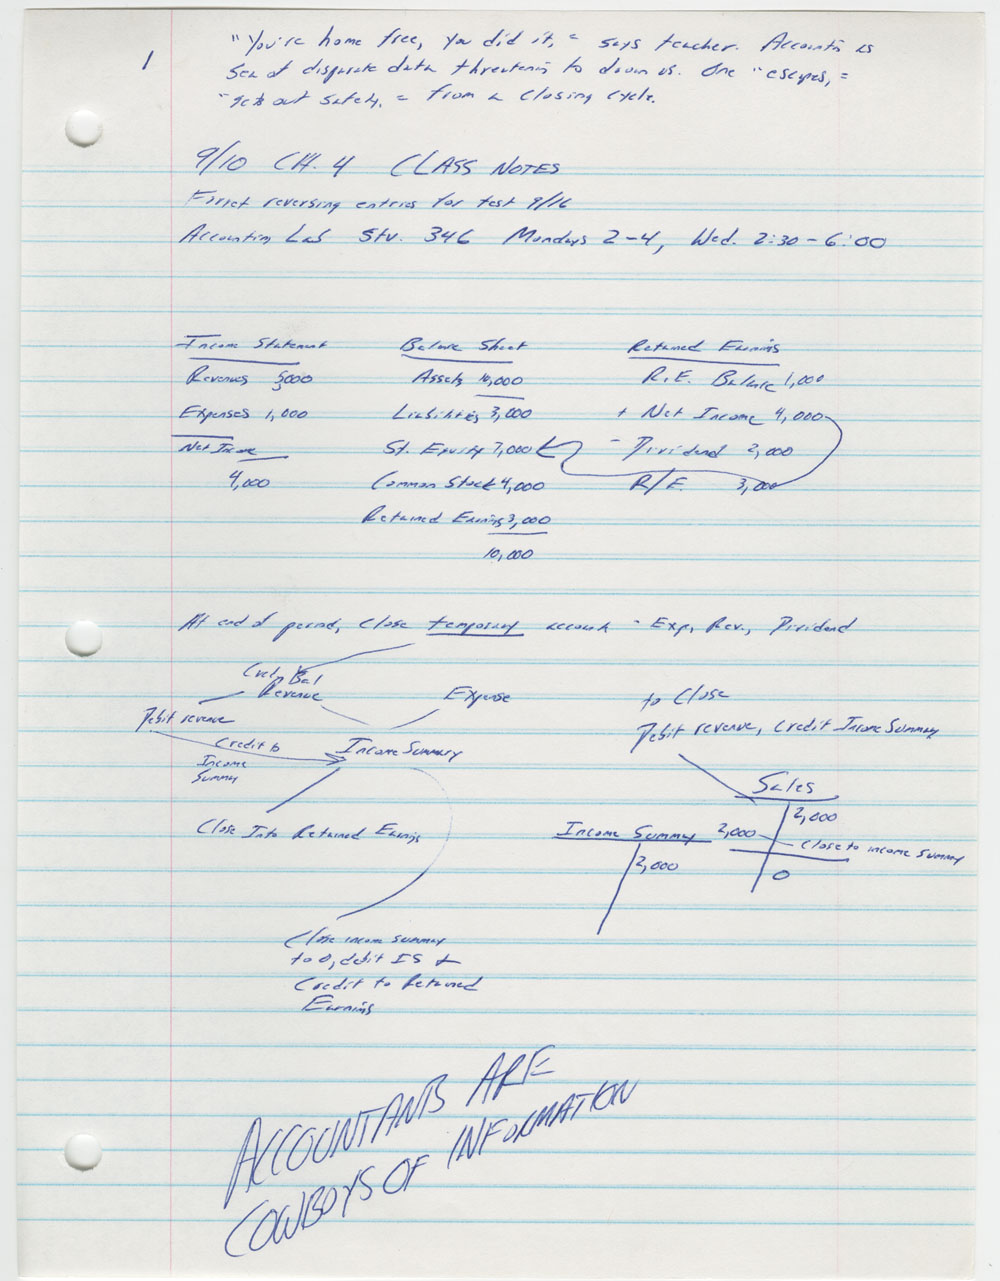 1
"You're home free, you did it," says teacher. Accounting is
sea of disparate data threatening to drown us. One "escapes,"
"gets out safely," from a closing cycle.
9/10 CH. 4 CLASS NOTES
reversing entries for test 9/16
Accounting Lab Stv. 346 Mondays 2-4, Wed. 2:30-6:00
Income Statement Balance Sheet Retained Earnings
Revenues 5000 Assets 10,000 R.E. Balance 1,000
Expenses 1,000 Liabilities 3,000 + Net Income 4,000
Net Income St. Equity 7,000 - Dividend 2,000
4,000 Common Stock 4,000 R/E 3,000
Retained Earnings 3,000
10,000
At end of period, close temporary accounts - Exp, Rev., Dividend
Bal
Revenue Expense to Close
Debit revenue Debit revenue, Credit Income Summary
Credit to Income Summary
Income
Summary
Sales
2,000
Close Into Retained Earnings Income Summary 2,000
Close to income summary
2,000
0
Close income summary
to 0, debit IS &
Credit to Retained
Earnings
ACCOUNTANTS ARE
COWBOYS OF INFORMATION